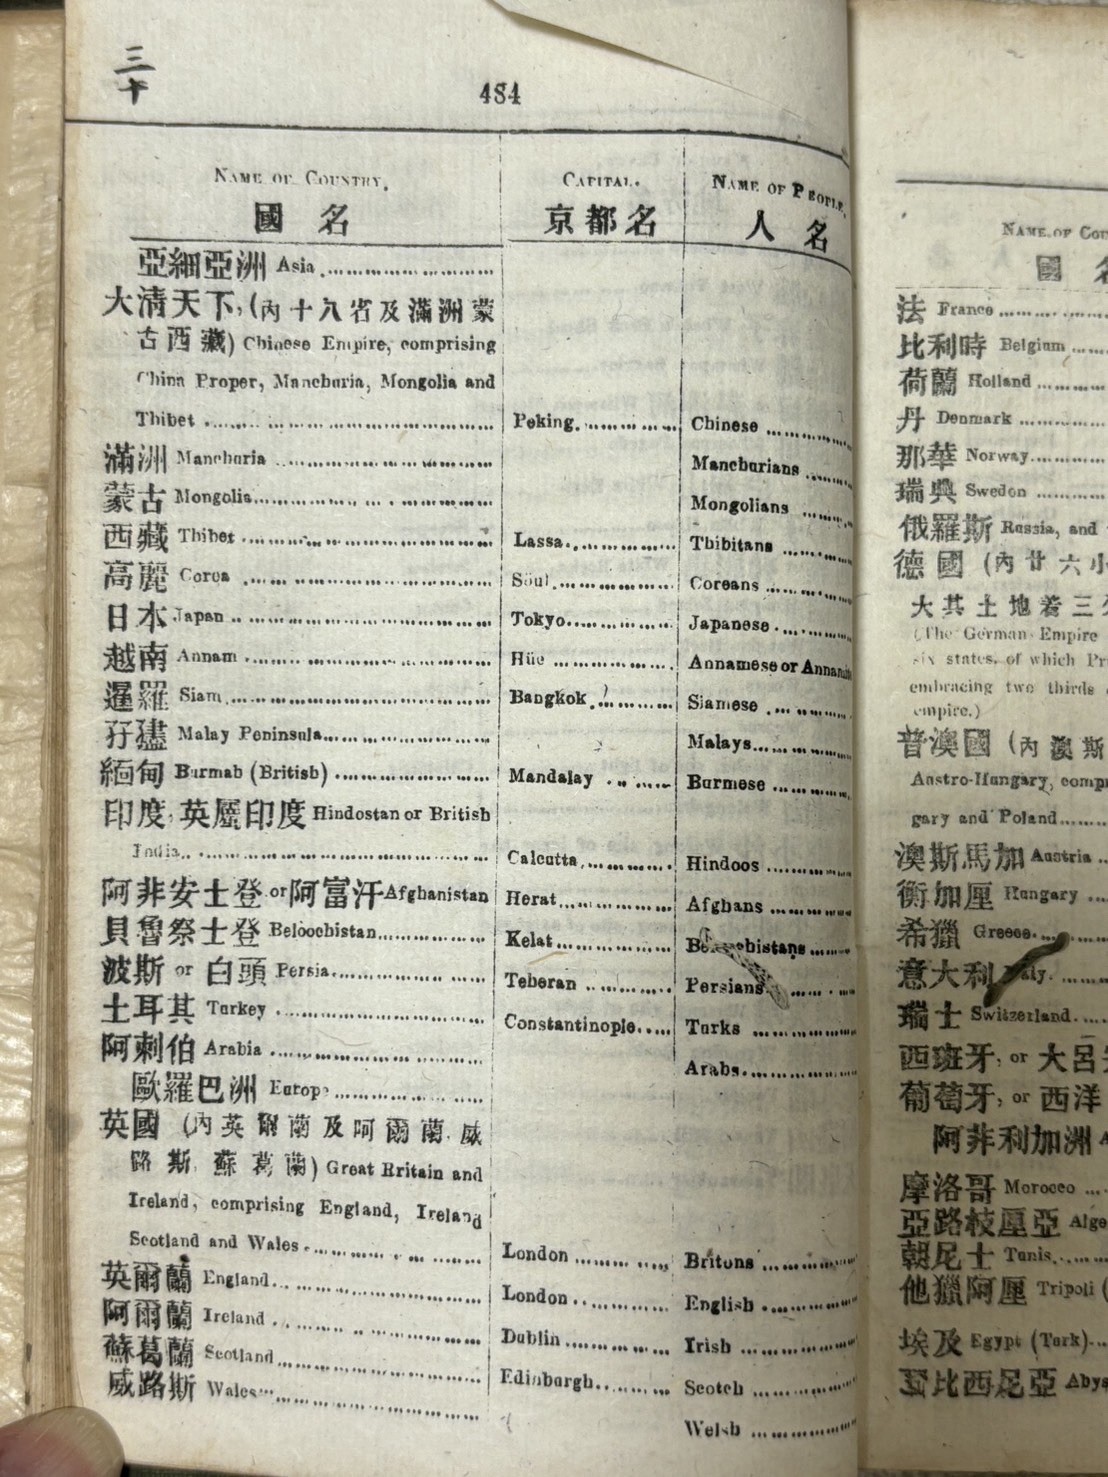 三十
484
NAME OF COUNTRY. CAPITAL. NAME OF PEOPLE.
國名 京都名 人名
亞細亞洲 Asia
大淸天下, (內十八省及滿洲蒙
古西藏) Chinese Empire, comprising
China Proper, Manchuria, Mongolia and
Thibet Peking. Chinese
滿洲 Manchuria Manchurians
蒙古 Mongolia Mongolians
西藏 Thibet Lassa Thibitans
高麗 Corea Söul Coreans
日本 Japan Tokyo Japanese
越南 Annam Hüe Annamese or
暹羅 Siam Bangkok Siamese
孖𤩹 Malay Peninsula Malays
緬甸 Burmah (British) Mandalay Burmese
印度, 英屬印度 Hindostan or British
India Calcutta Hindoos
阿非安士登 or 阿富汗 Afghanistan Herat Afghans
貝魯祭士登 Beloochistan Kelat
波斯 or 白頭 Persia Teheran Persians
土耳其 Turkey Constantinople Turks
阿剌伯 Arabia Arabs
歐羅巴洲 Europe
英國 (內英爾蘭及阿爾蘭, 威
路斯, 蘇葛蘭) Great Britain and
Ireland, comprising England, Ireland
Scotland and Wales London Britons
英爾蘭 England London English
阿爾蘭 Ireland Dublin Irish
蘇葛蘭 Scotland Edinburgh Scotch
威路斯 Wales Welsh
NAME OF
國
法 France
比利時 Belgium
荷蘭 Holland
丹 Denmark
那華 Norway
瑞典 Sweden
俄羅斯 Russia, and
德國 (內廿六小
大其土地着三
(The German Empire
six states, of which
embracing two thirds
empire.)
普澳國 (內澳斯
Austro-Hungary,
gary and Poland
澳斯馬加 Austria
衡加厘 Hungary
希獵 Greece
意大利
瑞士 Switzerland
西班牙, or 大呂
葡萄牙, or 西洋
阿非利加洲
摩洛哥 Morocco
亞路枝厘亞
朝尼士 Tunis
他獵阿厘 Tripoli (
埃及 Egypt (Turk)
比西尼亞